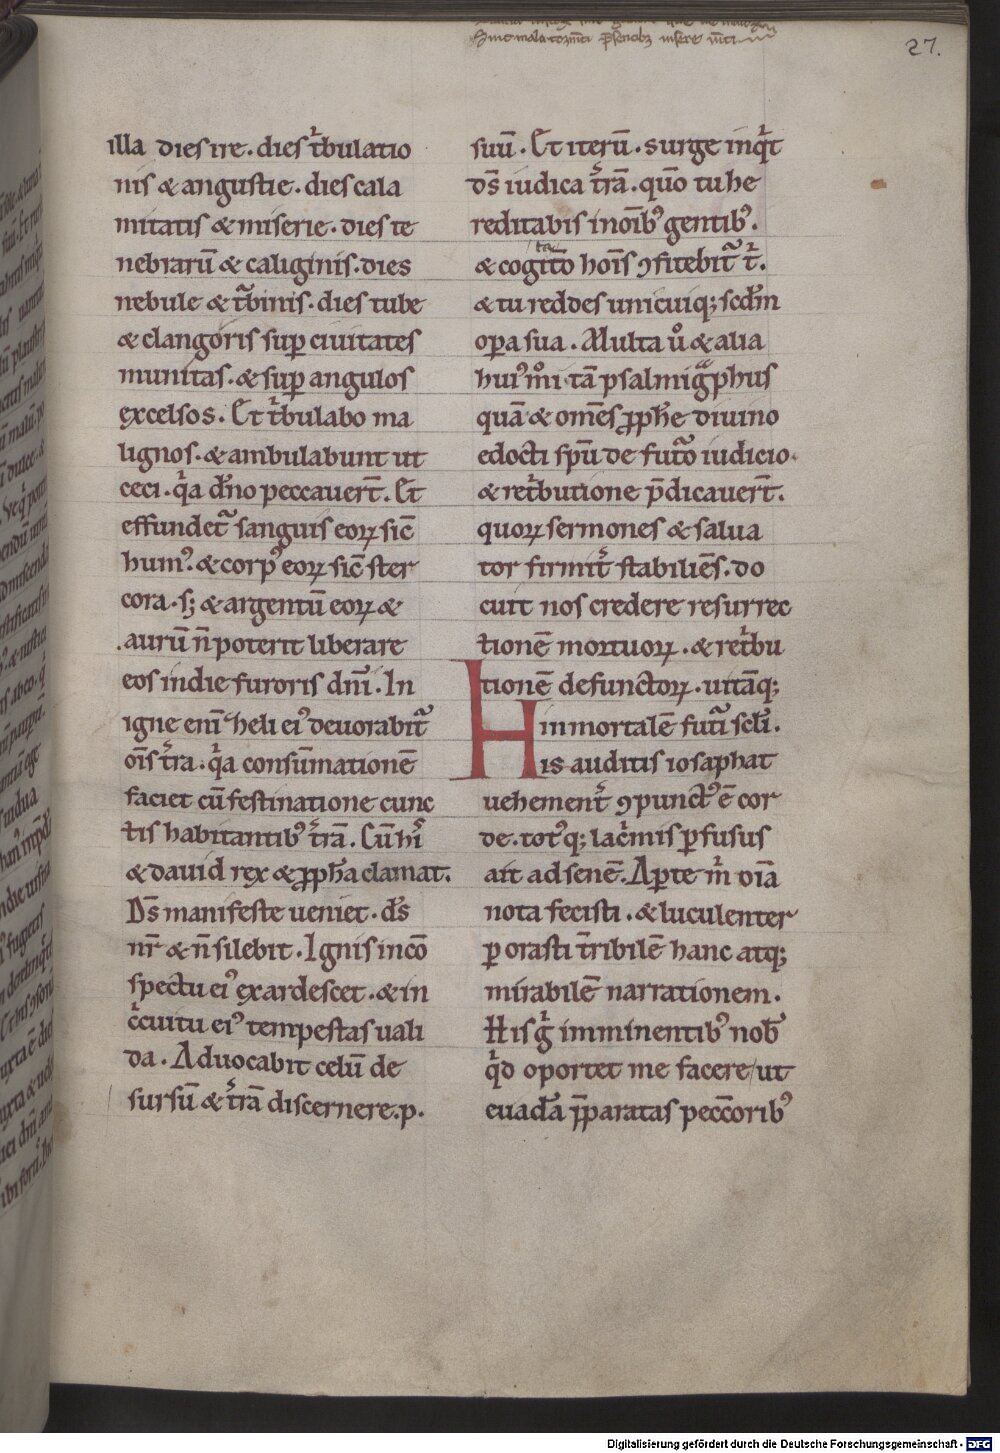 27.
illa dies ire. dies t̾bulatio
nis & angustie. dies cala
mitatis & miserie. dies te
nebrarū & caliginis. dies
nebule & t̾binis. dies tube
& clangoris suꝑ ciuitates
munitas. & suꝑ angulos
excelsos. Et t̾bulabo ma
lignos. & ambulabunt ut
ceci. q̾a dn̄o peccauer̄t. Et
effundet᷑ sanguis eoꝝ sic̄
humꝰ. & corpꝰ eoꝝ sic̄ ster
cora. s; & argentū eoꝝ &
aurū n̄ poterit liberare
eos in die furoris dn̄i. In
igne eni᷑ heli eiꝰ deuorabit᷑
oīs t̾ra. q̾a consūmationē
faciet cū festinatione cunc
tis habitantibꝰ t̾rā. Cū hiˢ
& dauid rex & ꝓph̄a clamat.
Ds̄ manifeste ueniet. ds̄
nr̄ & n̄ silebit. Ignis in cō
spectu eiꝰ exardescet. & in
c̾cuitu eiꝰ tempestas uali
da. Aduocabit celū de
sursū & t̾rā discernere .p.
suū. Et iterū. surge inq̾t
ds̄ iudica t̾rā. qūo tu he
reditabis in oībꝰ gentibꝰ.
& cogitō hoīs ꝯfitebit᷑ t̾.
& tu reddes unicuiq; scdm̄
opera sua. Multa ů & alia
huiꝰmͦi tā psalmigᷓphus
quā & om̄s ꝓph̄e diuino
edocti sp̄u de futᷓo iudicio.
& ret̾butione p̄dicauer̄t.
quoꝝ sermones & salua
tor firmit̾ stabiliēs. do
cuit nos credere resurrec
tionē mortuoꝝ. & ret̾bu
tionē defunctoꝝ. uitāq;
inmortalē futi᷑ scl̄i.
His auditis iosaphat
uehement̾ ꝯpunctꝰ ē cor
de. totꝰq; lac̾mis ꝑfusus
ait ad senē. Aꝑte m̾ oīa
nota fecisti. & luculenter
ꝑorasti t̾ribilē hanc atq;
mirabilē narrationem.
His g̾ imminentibꝰ nob̄
q̾d oportet me facere ut
euadā p̄paratas pecc̄oribꝰ
Digitalisierung gefördert durch die Deutsche Forschungsgemeinschaft - DFG